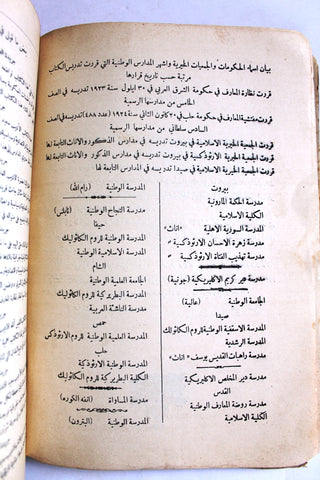 بيان اسماء الحكومات والجمعيات الخيرية واشهر المدارس الوطنية التي قررت تدريس الكتاب
مرتبة حسب تاريخ قرارها
قررت نظارة المعارف في حكومة الشرق العربي في ٣٠ ايلول سنة ١٩٢٣ تدريسه في الصف
الخامس من مدارسها الرسمية
قررت مفتشية المعارف في حكومة حلب في ٢٠ كانون الثاني سنة ١٩٢٤ (عدد ٤٨٨) تدريسه في الصف
السادس سلطاني من مدارسها الرسمية
قررت الجمعية الخيرية الاسلامية في بيروت تدريسه في مدارس الذكور والاناث التابعة لها
قررت الجمعية الخيرية الارثوذكسية في بيروت تدريسه في مدارس الذكور والاناث التابعة لها
قررت الجمعية الخيرية الاسلامية في صيدا تدريسه في المدارس التابعة لها
بيروت
مدرسة الحكمة المارونية
الكلية الاسلامية
المدرسة السورية الاهلية «اناث»
مدرسة زهرة الاحسان الارثوذكسية «
مدرسة تهذيب الفتاة الارثوذكسية «
مدرسة مجر كريم الاكليريكية (جونية)
الجامعة الوطنية (عالية)
صيدا
المدرسة الاسقفية الوطنية للروم الكاثوليك
المدرسة الرشدية
مدرسة راهبات القديس يوسف «اناث»
مدرسة دير المخلص الاكليريكية
القدس
مدرسة روضة المعارف الوطنية
الكلية الاسلامية
المدرسة الوطنية (رام الله)
مدرسة النجاح الوطنية (نابلس)
حيفا
المدرسة الوطنية للروم الكاثوليك
الشام
الجامعة العلمية الوطنية
المدرسة البطريركية للروم الكاثوليك
مدرسة الناشئة العربية
حمص
المدرسة العلمية الوطنية للروم الارثوذكس
حلب
المدرسة الوطنية الارثوذكسية
الكلية البطريركية للروم الكاثوليك
مدرسة المساواة (انفه الكوره)
المدرسة الوطنية (البترون)